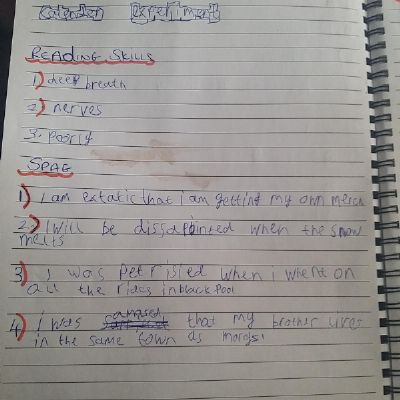 calender experiment
READING SKILLS
1) deep breath
2) nerves
3. poorly
SPAG
1) I am extatic that i am getting my own merch
2) I will be dissapointed when the snow
melts
3) I was petrisied when i whent on
all the rides in black pool
4) I was amased that my brother lives
in the same town as